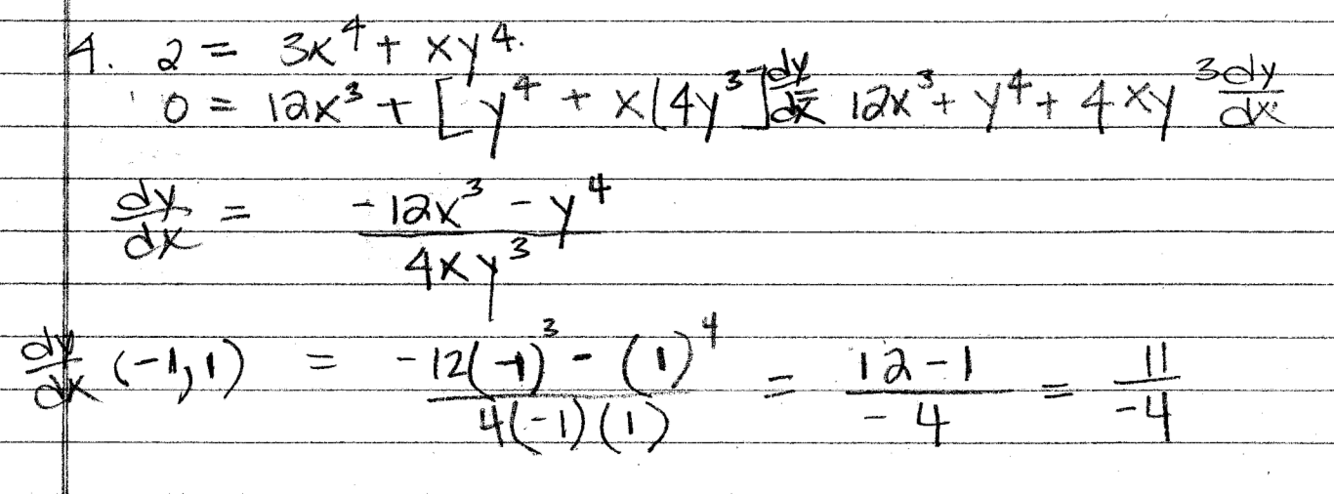 4. 2 = 3x⁴ + xy⁴.
0 = 12x³ + [y⁴ + x(4y³] dy/dx = 12x³ + y⁴ + 4xy³ dy/dx
dy/dx = (-12x³ - y⁴)/(4xy³)
dy/dx (-1, 1) = (-12(-1)³ - (1)⁴)/(4(-1)(1)) = (12-1)/(-4) = 11/(-4)